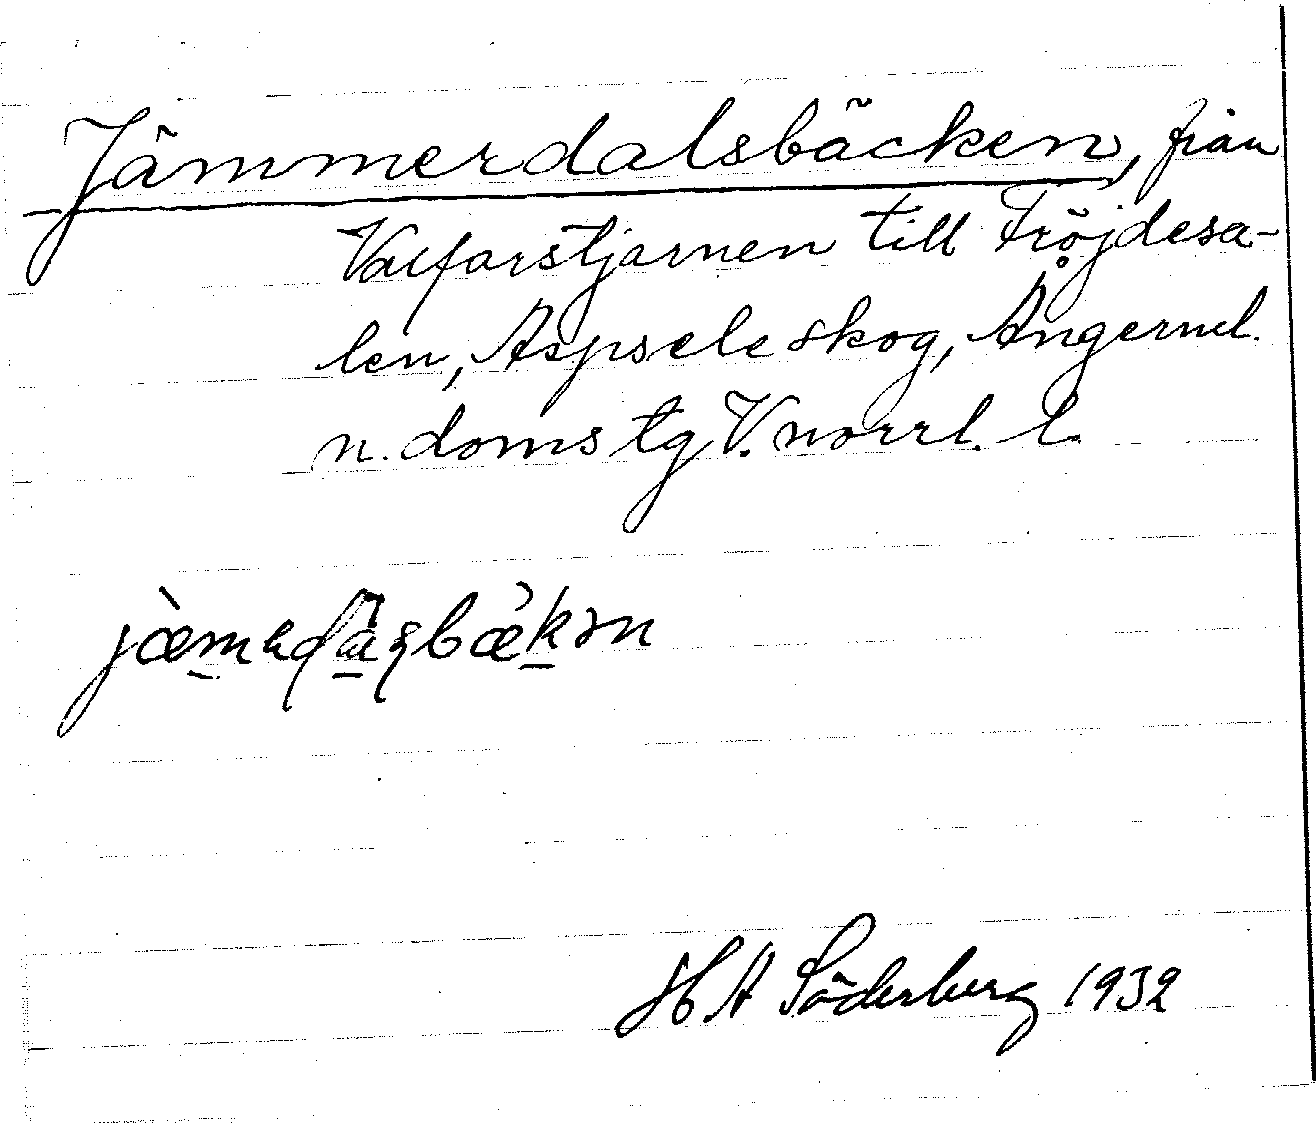 Jämmerdalsbäcken, från
Valfarstjärnen till Fröjdesa-
len, Aspsele skog, Ångerml.
n. doms tg V. norrl. l.
H A Söderberg 1932